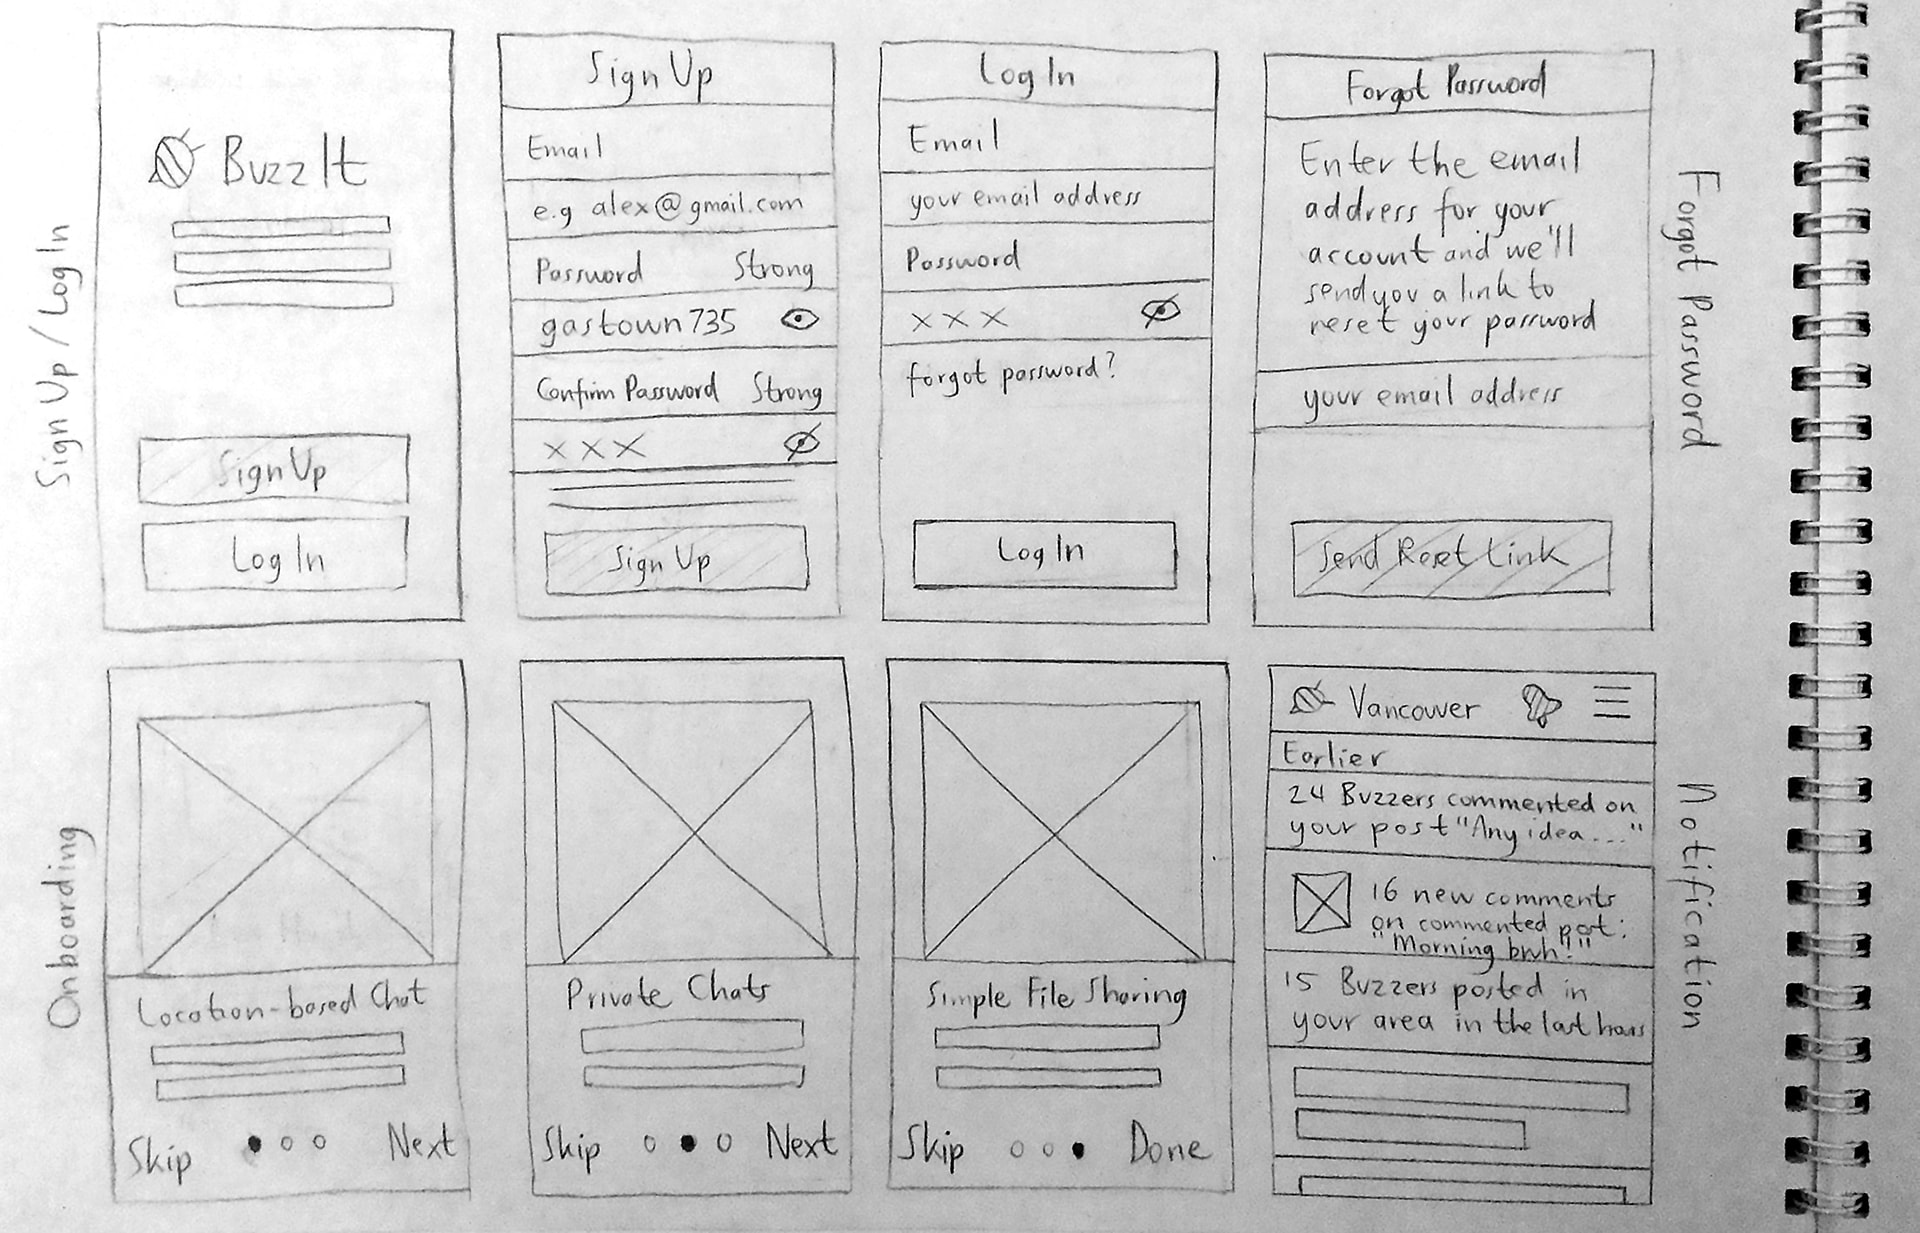 Sign Up / Log In
BuzzIt
Sign Up
Log In
Sign Up
Email
e.g alex@gmail.com
Password Strong
gastown735
Confirm Password Strong
XXX
Sign Up
Log In
Email
your email address
Password
XXX
forgot password?
Log In
Forgot Password
Enter the email
address for your
account and we'll
send you a link to
reset your password
your email address
Send Reset Link
Forgot Password
Onboarding
Location-based Chat
Skip Next
Private Chats
Skip Next
Simple File Sharing
Skip Done
Vancouver
Earlier
24 Buzzers commented on
your post "Any idea...."
16 new comments
on commented post:
"Morning
15 Buzzers posted in
your area in the last
Notification